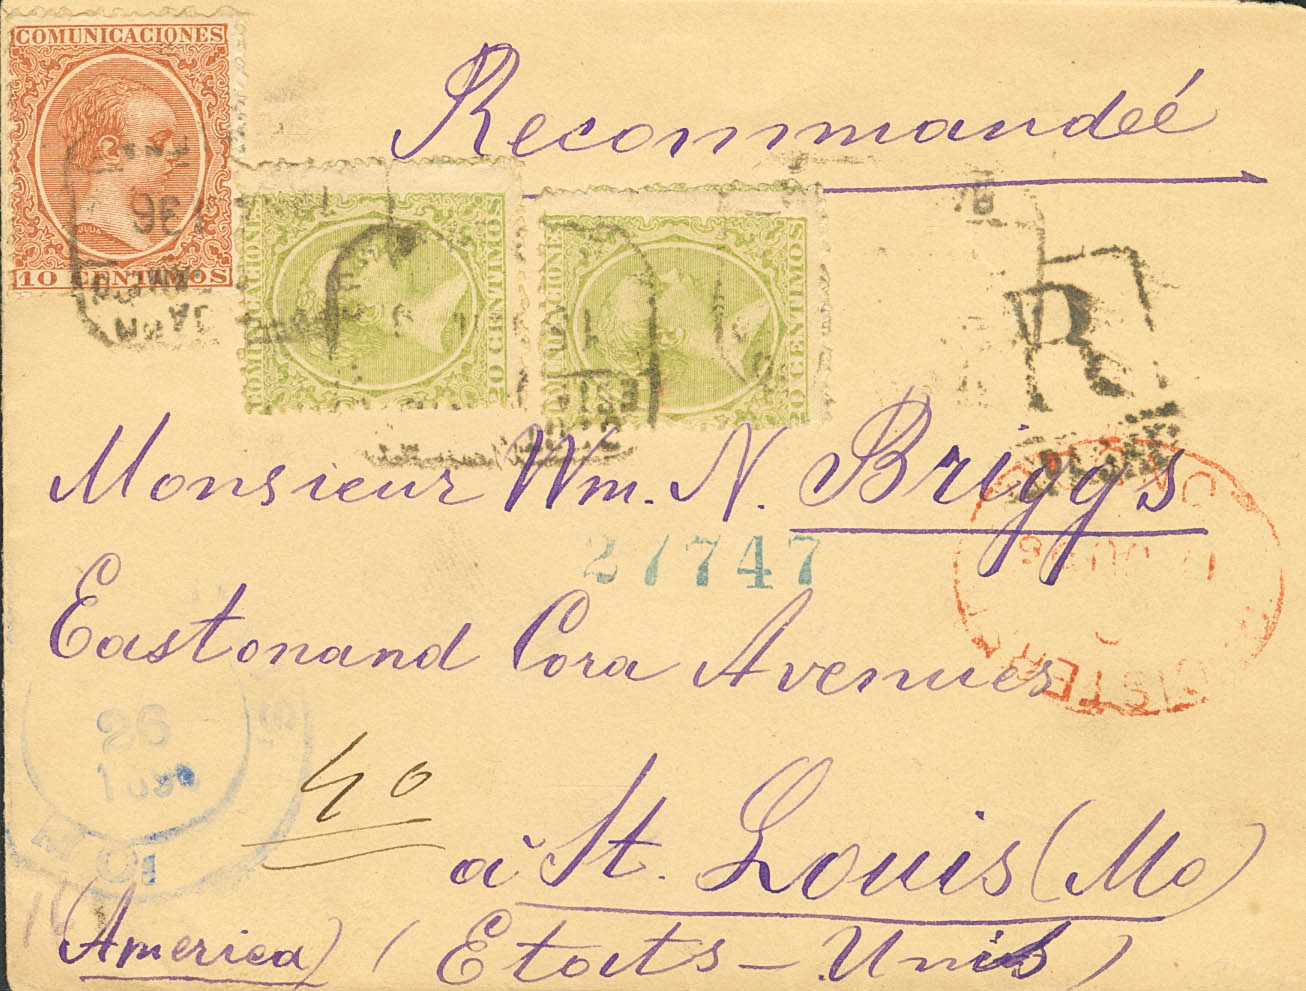 COMUNICACIONES
10 CENTIMOS
COMUNICACIONES
20 CENTIMOS
20 CENTIMOS
Recommandeé
R
Monsieur Wm. N. Briggs
27747
Eastonand Cora Avenues
26
40
à St. Louis (Mo)
(America) (Etats-Unis)